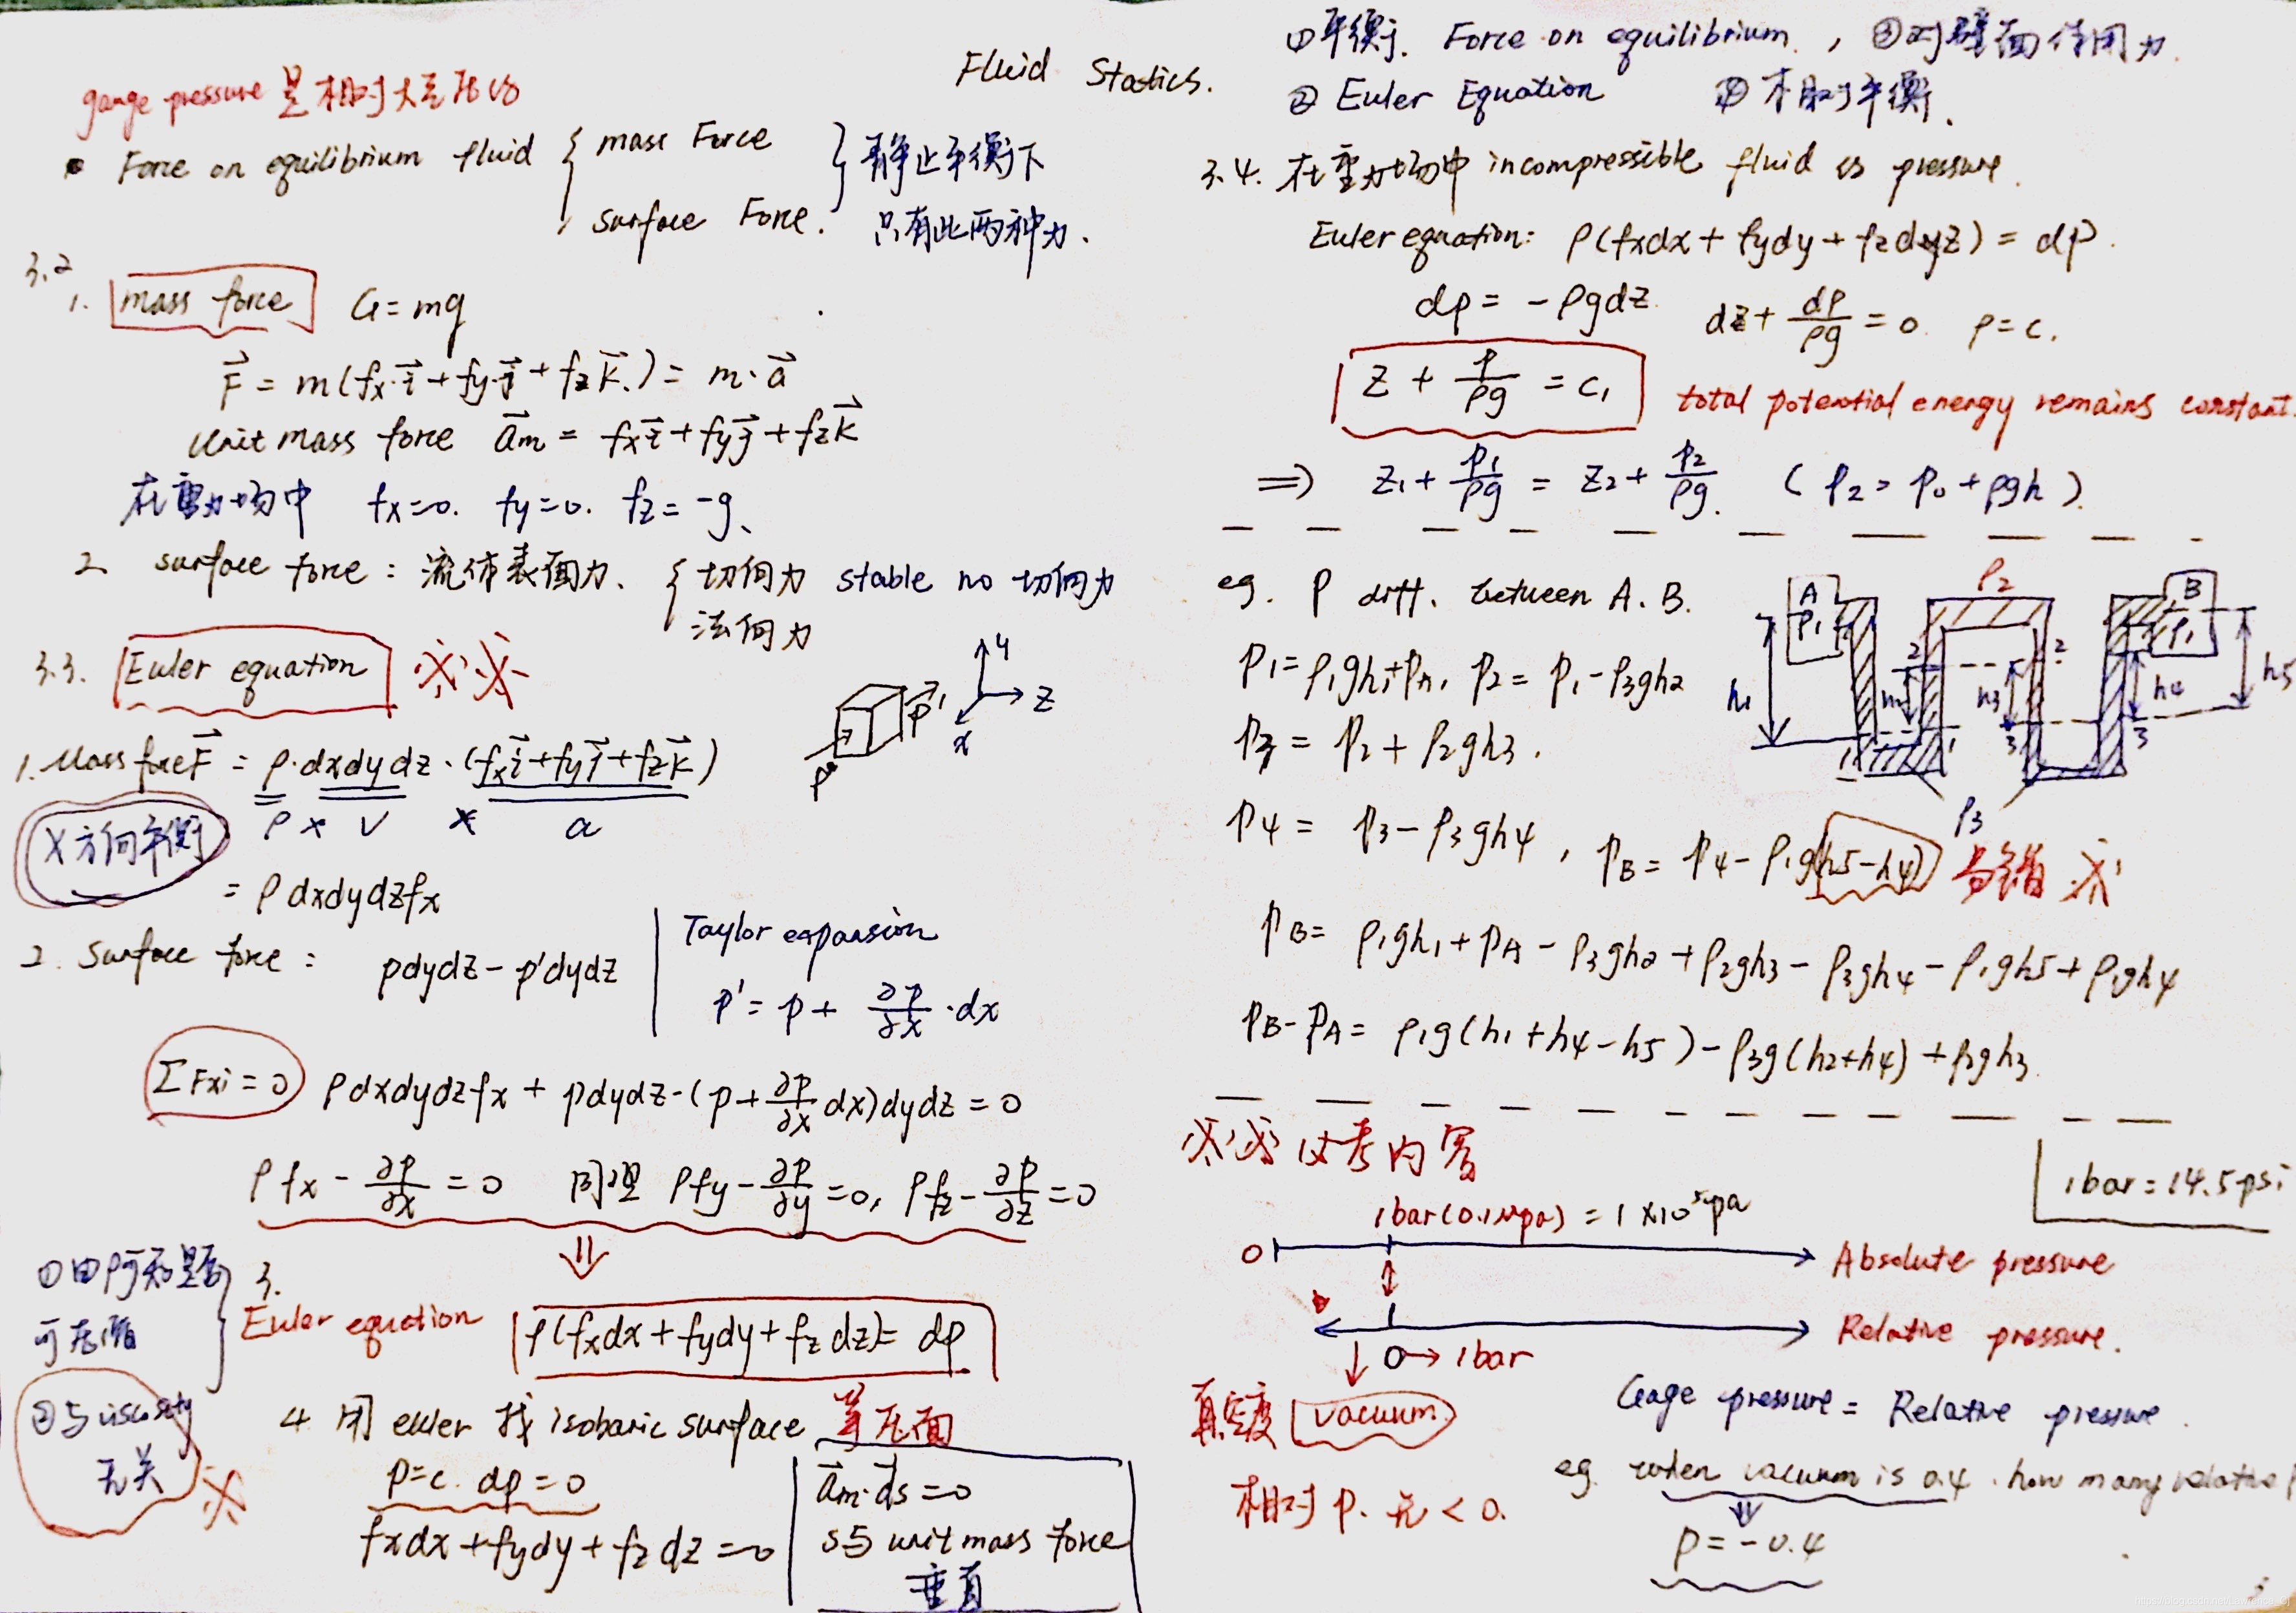 Fluid Statics.
gauge pressure 是相对大气压的
• Force on equilibrium fluid { mass Force
surface Force. } 静止平衡下
只有此两种力.
3.2
1. mass force G=mg
F⃗ = m(fx·i⃗+fy·j⃗+fz k⃗.)= m·a⃗
Unit mass force a⃗m = fx i⃗+fy j⃗+fz k⃗
在重力场中 fx=0. fy=0. fz=-g、
2 surface force : 流体表面力、 { 切向力 stable no 切向力
法向力
3.3. Euler equation ※※
y
z
x
P
P'
1. Mass force F⃗ = ρ·dxdydz·(fx i⃗+fy j⃗+fz k⃗)
ρ × V × a
X方向平衡
= ρdxdydzfx
2. Surface force : pdydz-p'dydz
Taylor expansion
p'= p+ ∂p/∂x ·dx
ΣFxi=0 ρdxdydzfx + pdydz-(p+∂p/∂x dx)dydz=0
ρfx - ∂p/∂x =0 同理 ρfy-∂p/∂y=0, ρfz-∂p/∂z=0
⇓
①
可压缩
②与viscosity
无关 ※
3.
Euler equation ρ(fxdx+fydy+fz dz)= dp
4 用 euler 找 isobaric surface 等压面
p=c. dp=0
fxdx+fydy+fz dz=0
a⃗m·d⃗s=0
s与 unit mass force
垂直
①平衡. Force on equilibrium. , ③对壁面作用力.
② Euler Equation ④相对平衡.
3.4. 在重力场中 incompressible fluid 的 pressure.
Euler equation: ρ(fxdx+fydy+fzdyz)= dp.
dp= -ρgdz dz+ dp/ρg =0 ρ=c.
z + p/ρg = c1 total potential energy remains constant.
⇒ z1+ p1/ρg = z2+ p2/ρg. (p2= p0+ρgh).
eg. P diff. between A. B.
A
ρ1
ρ2
B
ρ1
h1
h2
h3
h4
h5
1
1
2
2
3
3
ρ3
p1= ρ1gh1+pA, p2= p1-ρ3gh2
p3= p2+ρ2gh3.
p4= p3-ρ3gh4, pB= p4-ρ1g(h5-h4) 易错 ※
pB= ρ1gh1+pA-ρ3gh2+ρ2gh3-ρ3gh4-ρ1gh5+ρ1gh4
pB-pA= ρ1g(h1+h4-h5)-ρ3g(h2+h4)+ρ2gh3
※※ 必考内容
1bar=14.5psi
1bar(0.1Mpa)=1×10⁵pa
0 Absolute pressure
Relative pressure.
0→1bar
真空度 vacuum
Gage pressure= Relative pressure.
相对 p. 元<0.
eg. when vacuum is 0.4. how many relative p
⇓
p=-0.4